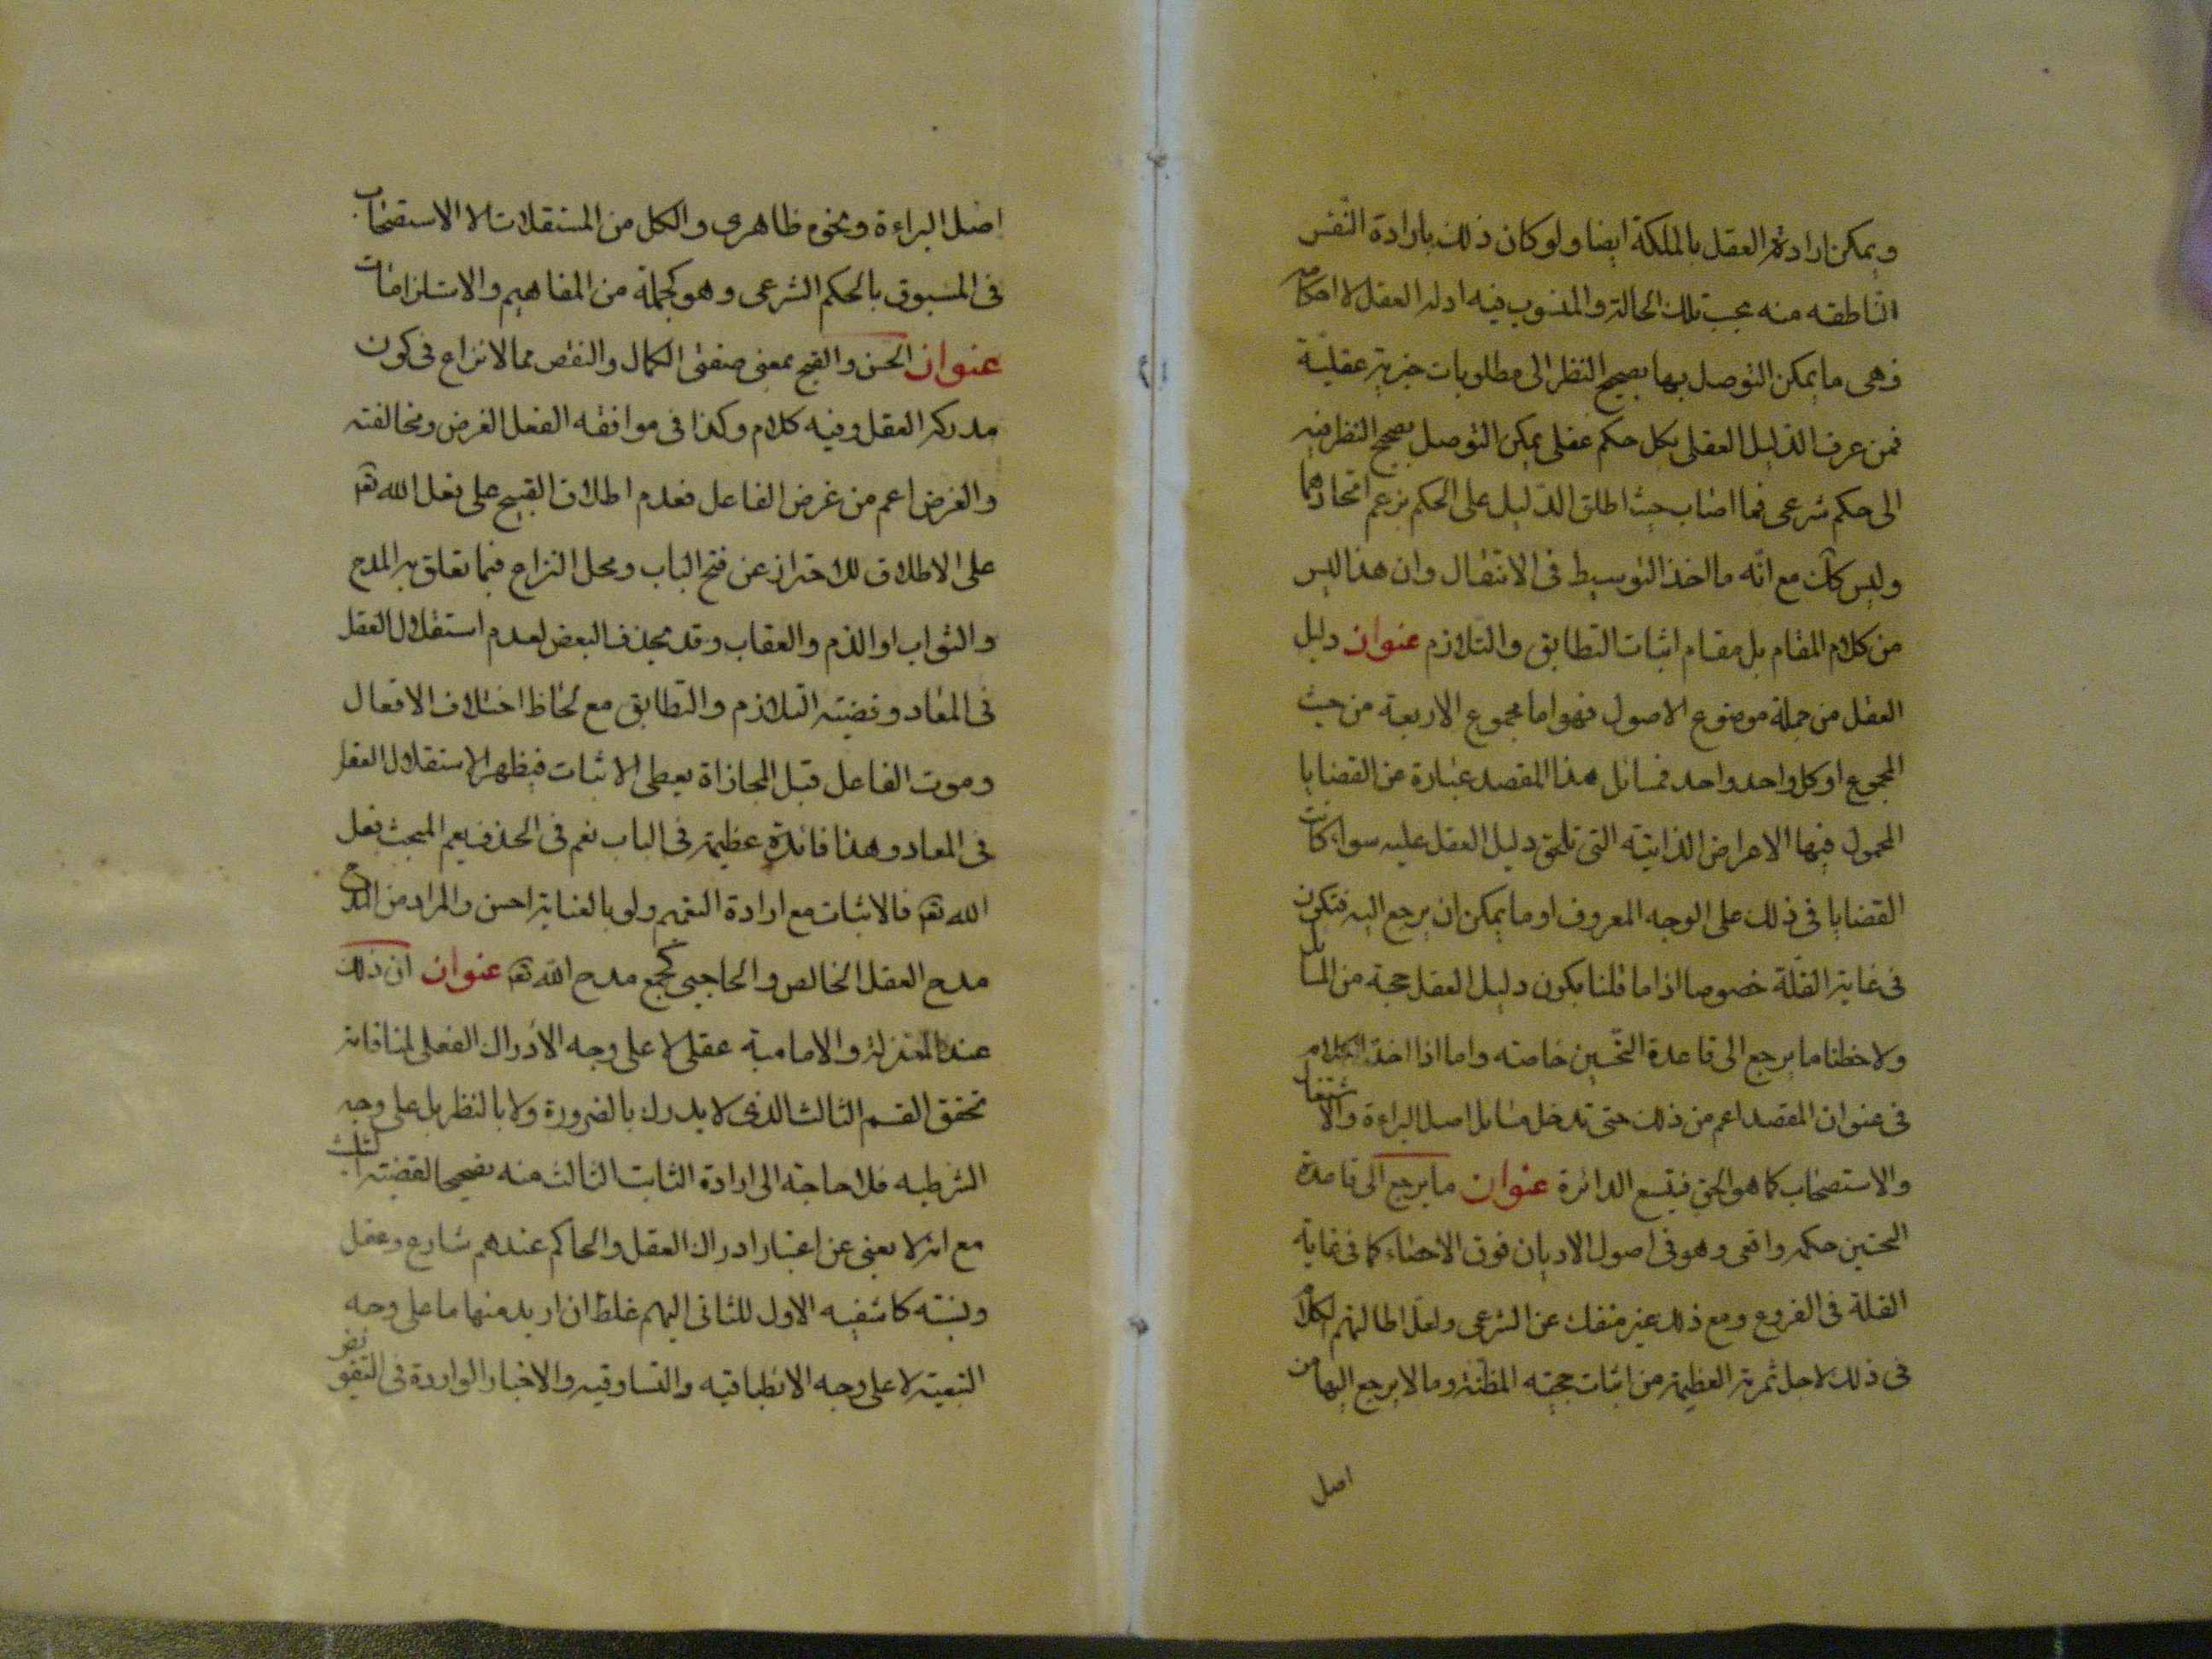 ويمكن ارادة العقل بالملكة ايضا ولو كان ذلك بارادة النفس
الناطقه منه بحسب تلك الحالة والمنسوب فيه ادلة العقل لا احكامه
فهى ما يمكن التوصل بها بصحيح النظر الى مطلوبات خبرية عقلية
فمن عرف الدليل العقلى بكل حكم عقلى يمكن التوصل بصحيح النظر فيه
الى حكم شرعى فما اصاب حيث اطلق الدليل على الحكم بزعم اتحادهما
وليس كك مع انه ما اخذ التوسيط فى الانتقال وان هذا ليس
من كلام المقام بل مقام اثبات التطابق والتلازم عنوان دليل
العقل من جملة موضوع الاصول فهو اما مجموع الاربعة من حيث
المجموع او كل واحد واحد فمسائل هذا المقصد عبارة عن القضايا
المحمول فيها الاعراض الذاتية التى تلحق دليل العقل عليه سواء كانت
القضايا فى ذلك على الوجه المعروف او ما يمكن ان يرجع اليه فتكون
فى غاية القلة خصوصا اذا ما قلنا بكون دليل العقل حجة من المسائل
ولاحظنا ما يرجع الى قاعدة التحسين خاصته واما اذا اخذ الكلام
فى عنوان المقصد اعم من ذلك حتى تدخل مسائل اصل البراءة والاشتغال
والاستصحاب كما هو الحق فيتسع الدائرة عنوان ما يرجع الى قاعدة
التحسين حكمه واقعى وهو فى اصول الاديان فوق الاحصاء كما فى غاية
القلة فى الفروع ومع ذلك غير منفك عن الشرعى ولعل اطالتهم الكلام
فى ذلك لاجل ثمرته العظيمة من اثبات حجية المظنة وما لا يرجع اليها من
اصل
اصل البراءة ونحوه ظاهرى والكل من المستقلات لا الاستصحاب
فى المسبوق بالحكم الشرعى وهو كجملة من المفاهيم والاستلزامات
عنوان الحسن والقبح بمعنى صفتى الكمال والنقص مما لا نزاع فى كون
مدركه العقل وفيه كلام وكذا فى موافقه الفعل الغرض ومخالفته
والغرض اعم من غرض الفاعل فعدم اطلاق القبيح على فعل الله تعه
على الاطلاق للاحتراز عن فتح الباب ومحل النزاع فيما تعلق به المدح
والثواب او الذم والعقاب وقد يحذف البعض لعدم استقلال العقل
فى المعاد وقضيته التلازم والتطابق مع لحاظ اختلاف الافعال
وموت الفاعل قبل المجازاة يعطى الاثبات فيظهر الاستقلال العقل
فى المعاد وهذا فائدة عظيمة فى الباب نعم فى الحذف يعم المبحث فعل
الله تعه فالاثبات مع ارادة التعميم ولو بالعناية احسن والمراد من المدح
مدح العقل الخالص والحاجبى كجمع مدح الله تعه عنوان ان ذلك
عند المعتزلة والامامية عقلى لا على وجه الادراك الفعلى لمنافاته
تحقق القسم الثالث الذى لا يدرك بالضرورة ولا بالنظر بل على وجه
الشرطيه فلا حاجة الى ارادة الثابت الثالث منه تصحيحا لقضيته
مع انه لا يعنى عن اعتبار ادراك العقل والحاكم عندهم شارع وعقل
ونسبته كاشفيه الاول للثانى اليهم غلط ان اريد منها ما على وجه
التبعيته لا على وجه الانطباقيه والتساوقيه والاخبار الواردة فى